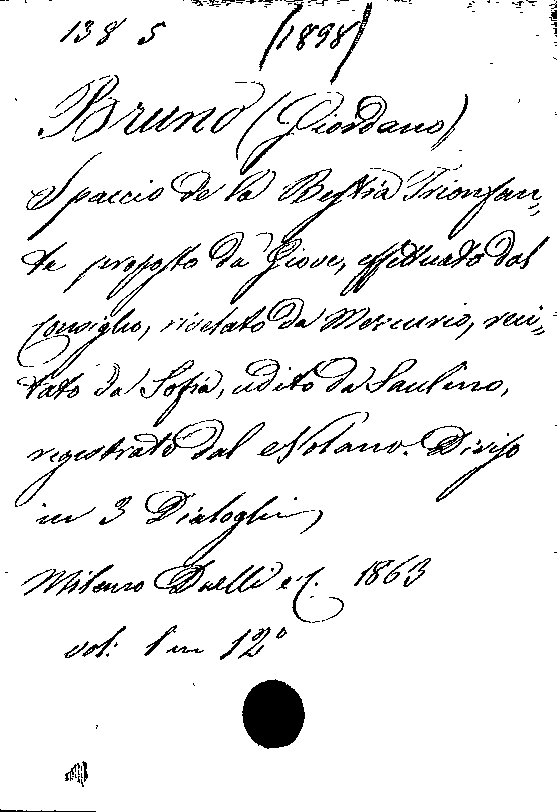 138 5 (1898)
Bruno (Giordano)
Spaccio de la Bestia Trionfan=
te proposto da Giove, effettuato dal
Consiglio, rivelato da Mercurio, reci=
tato da Sofia, udito da Saulino,
registrato dal Nolano. Diviso
in 3 Dialoghi,
Milano Daelli e C. 1863
vol: 1 in 12°